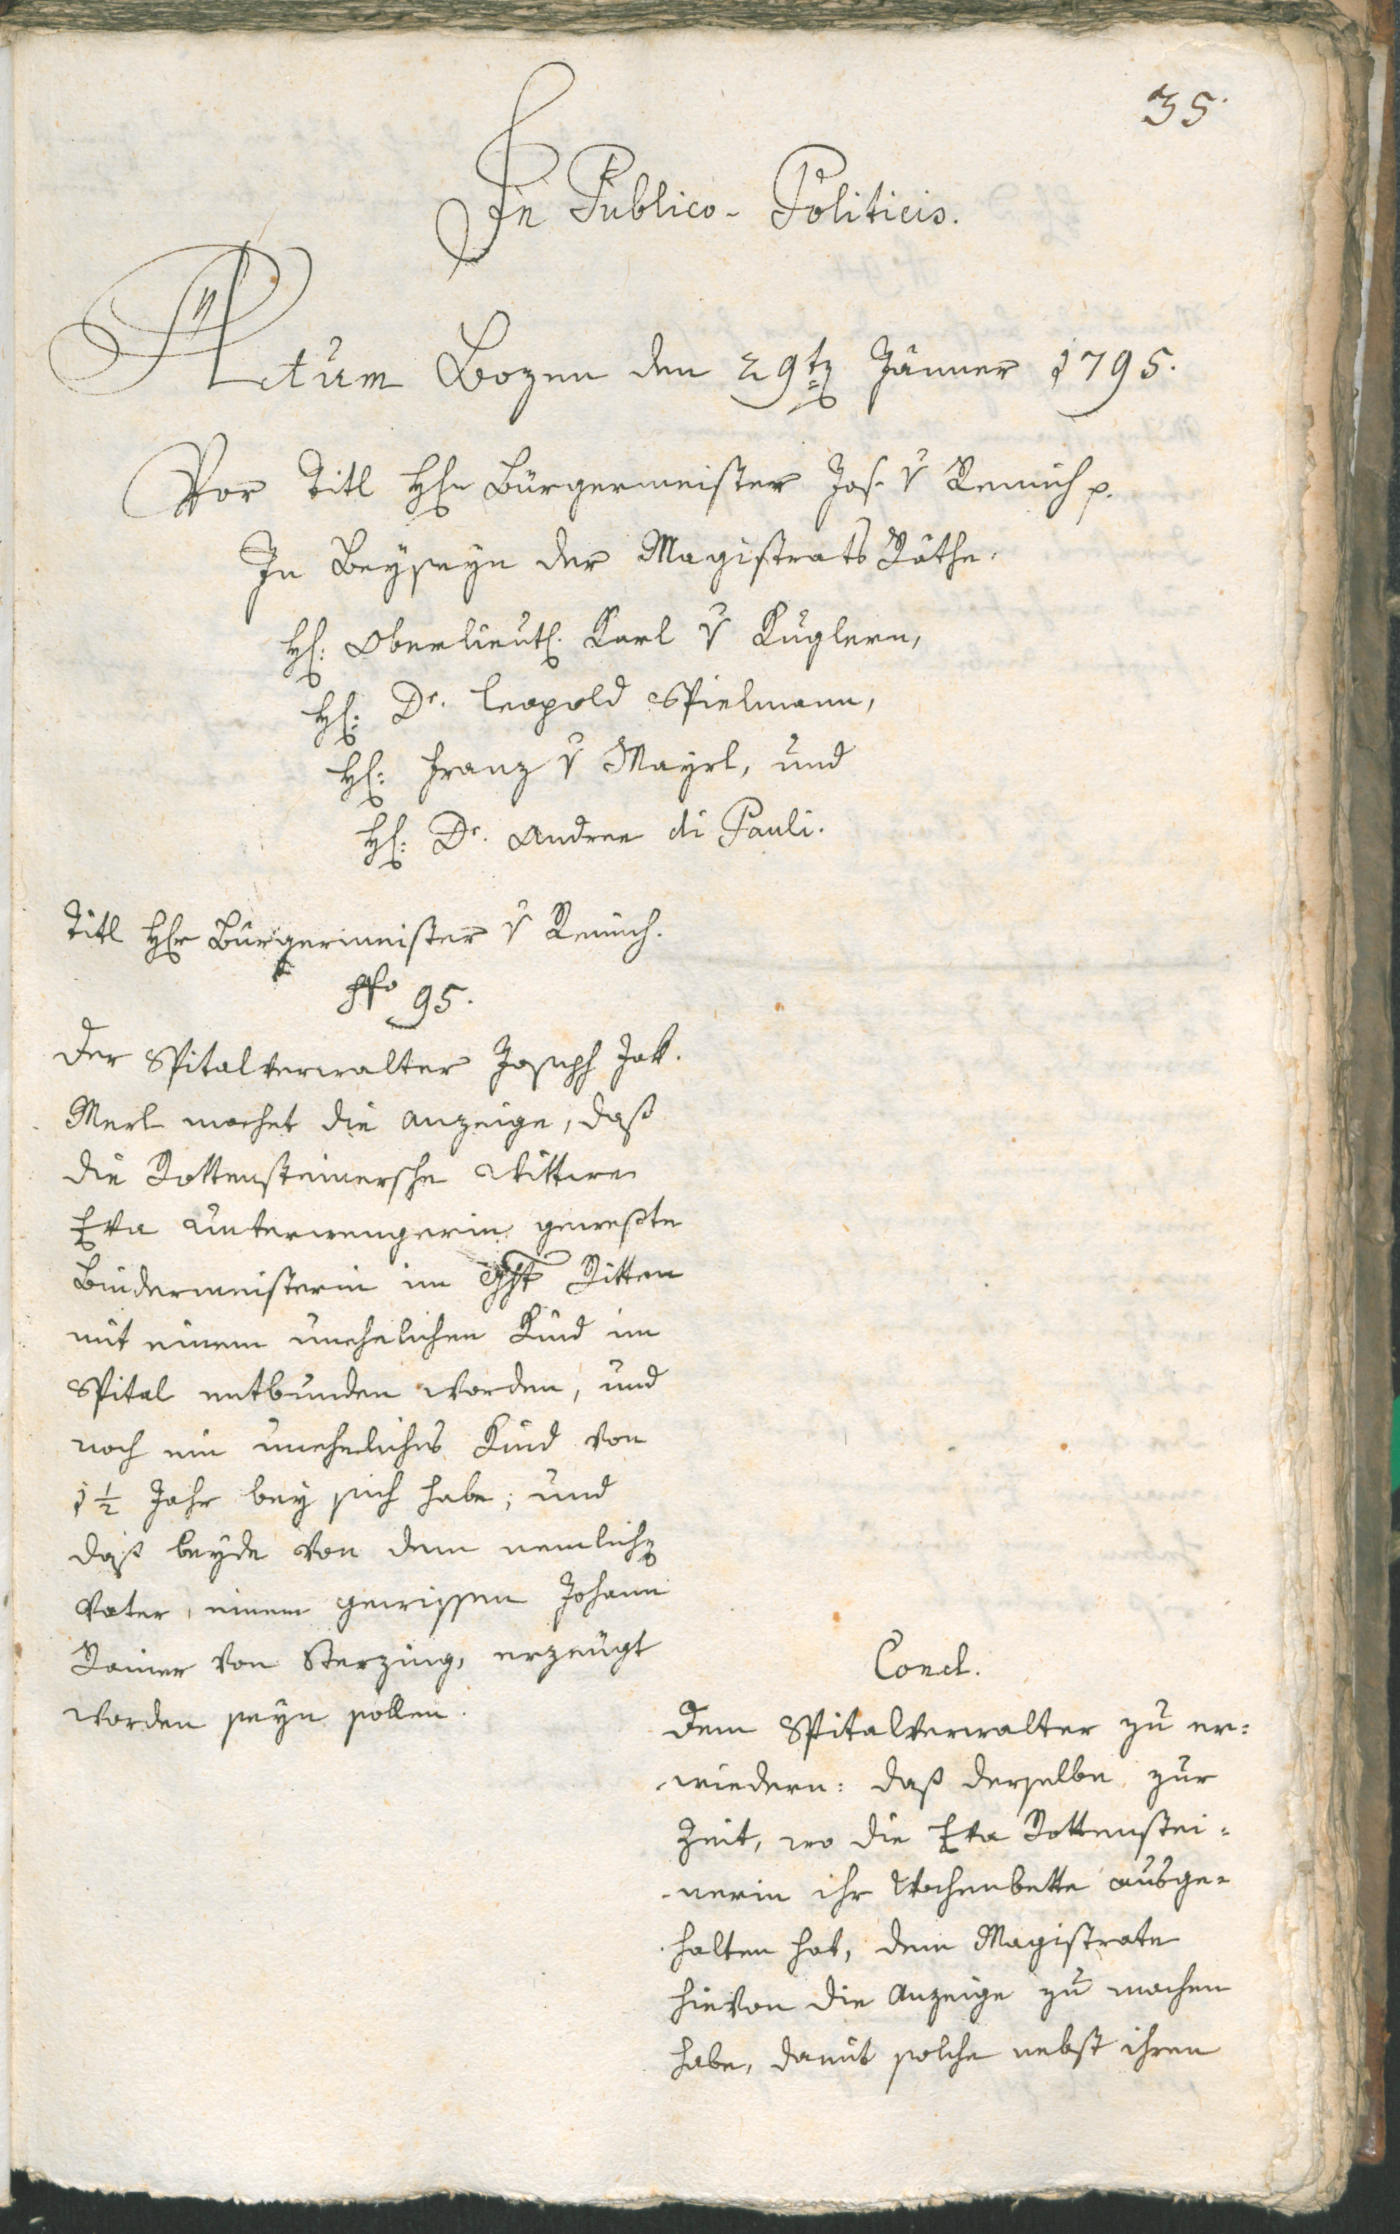 35.
In Publico-Politicis.
Actum Bozen den 29tn Jänner 1795.
Vor Titl Hhn Bürgermeister Jos. v Remich p.
In Beyseyn der Magistrats Räthe.
H: Oberlieut. Karl v Kuglern,
H: Dr. Leopold Spielmann,
H: Franz v Mayrl, und
H: Dr. Andree di Pauli.
Titl Hhr Bürgermeister v Remich.
No 95.
Der Spitalverwalter Joseph Jak.
Merl machet die Anzeige, daß
die Rottensteinersche Wittwe
Eva Unterwengerin geweßte
Bindermeisterin im Ght Ritten
mit einem unehelichen Kind im
Spital entbunden worden, und
noch ein uneheliches Kind von
1 1/2 Jahr bey sich habe; und
daß beyde von dem nemlichn
Vater, einem gewissen Johann
Rainer von Sterzing, erzeugt
worden seyn sollen.
Concl.
Dem Spitalverwalter zu er=
wiedern: daß derselbe zur
Zeit, wo die Eva Rottenstei=
nerin ihr Wochenbette ausge=
halten hat, dem Magistrate
hievon die Anzeige zu machen
habe, damit solche nebst ihren